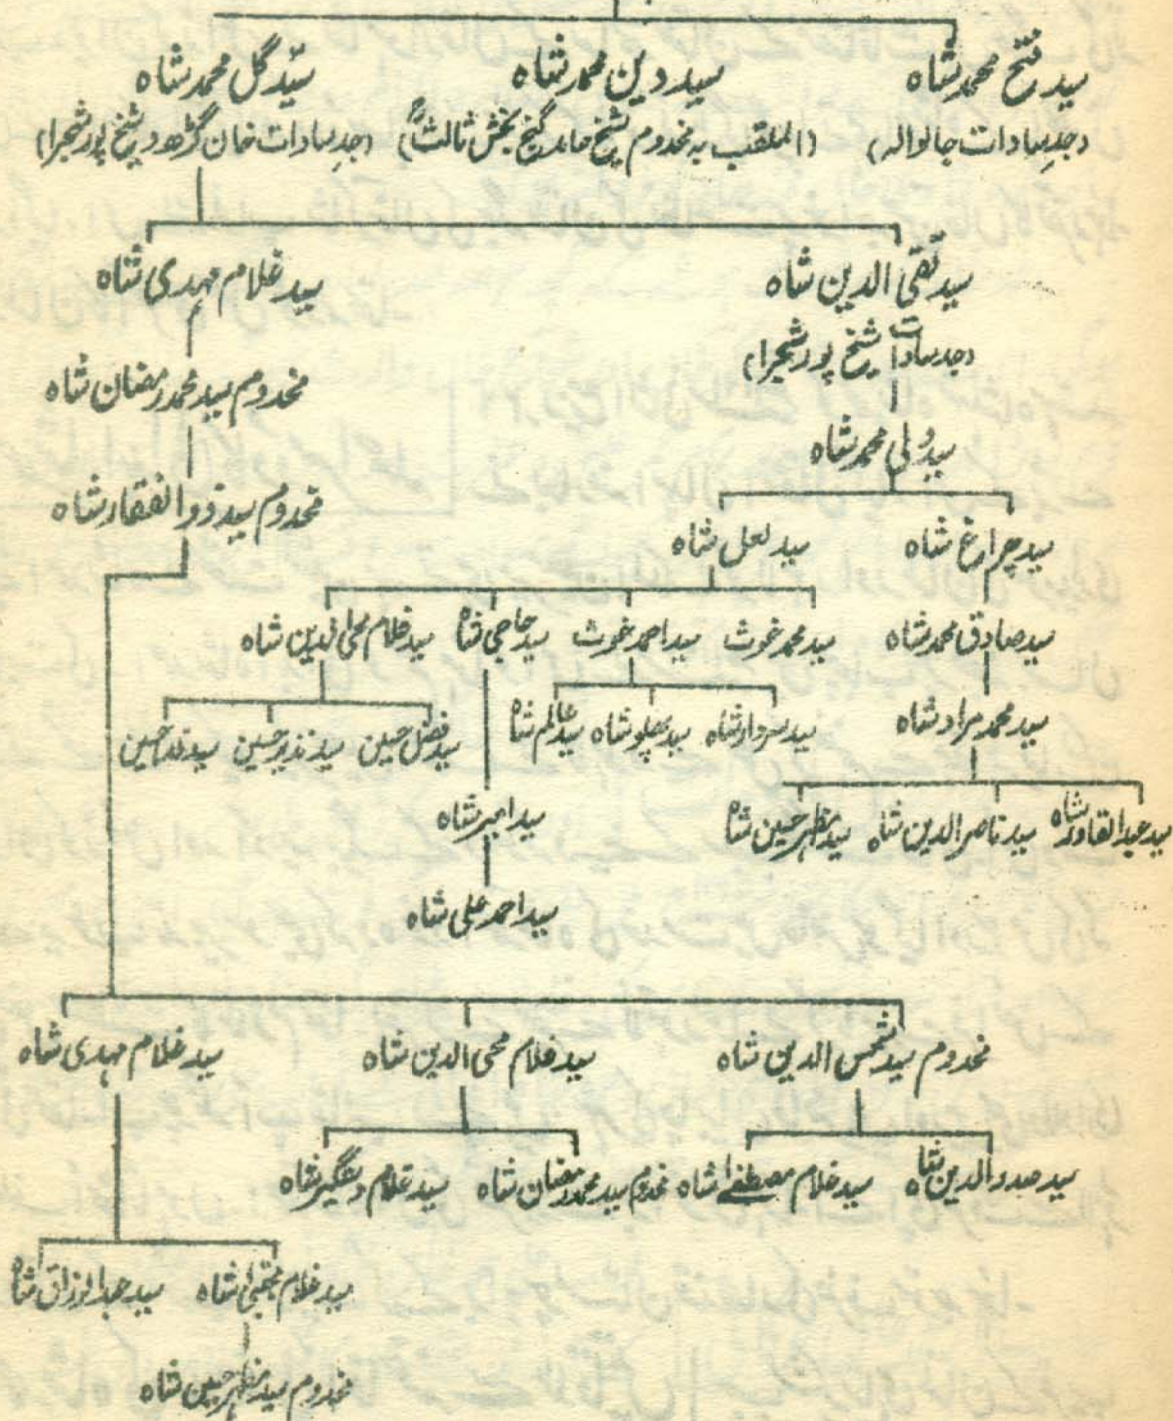 سید فتح محمد شاہ سید دین محمد شاہ سیّد گل محمد شاہ
(جدِ سادات جالوالہ) (الملقب بہ مخدوم شیخ حامد گنج بخش ثالثؒ) (جدِ سادات خان گڑھ و شیخ پور شجرا)
سید تقی الدین شاہ سید غلام مہدی شاہ
(جد سادات شیخ پور شجرا)
مخدوم سید محمد رمضان شاہ
سید ولی محمد شاہ
مخدوم سید ذوالفقار شاہ
سید چراغ شاہ سید لعل شاہ
سید صادق محمد شاہ سید محمد غوث سید احمد غوث سید حاجی شاہ سید غلام محی الدین شاہ
سید محمد مراد شاہ سید سردار شاہ سید پھلو شاہ سید عالم شاہ سید فضل حسین سید نذیر حسین سید فدا حسین
سید عبدالقادر شاہ سید ناصر الدین شاہ سید مظہر حسین شاہ سید امیر شاہ
سید احمد علی شاہ
مخدوم سید شمس الدین شاہ سید غلام محی الدین شاہ سید غلام مہدی شاہ
سید صدر الدین شاہ سید غلام مصطفےٰ شاہ مخدوم سید محمد رمضان شاہ سید غلام دستگیر شاہ
سید غلام مجتبیٰ شاہ سید عبدالرزاق شاہ
مخدوم سید مظہر حسین شاہ